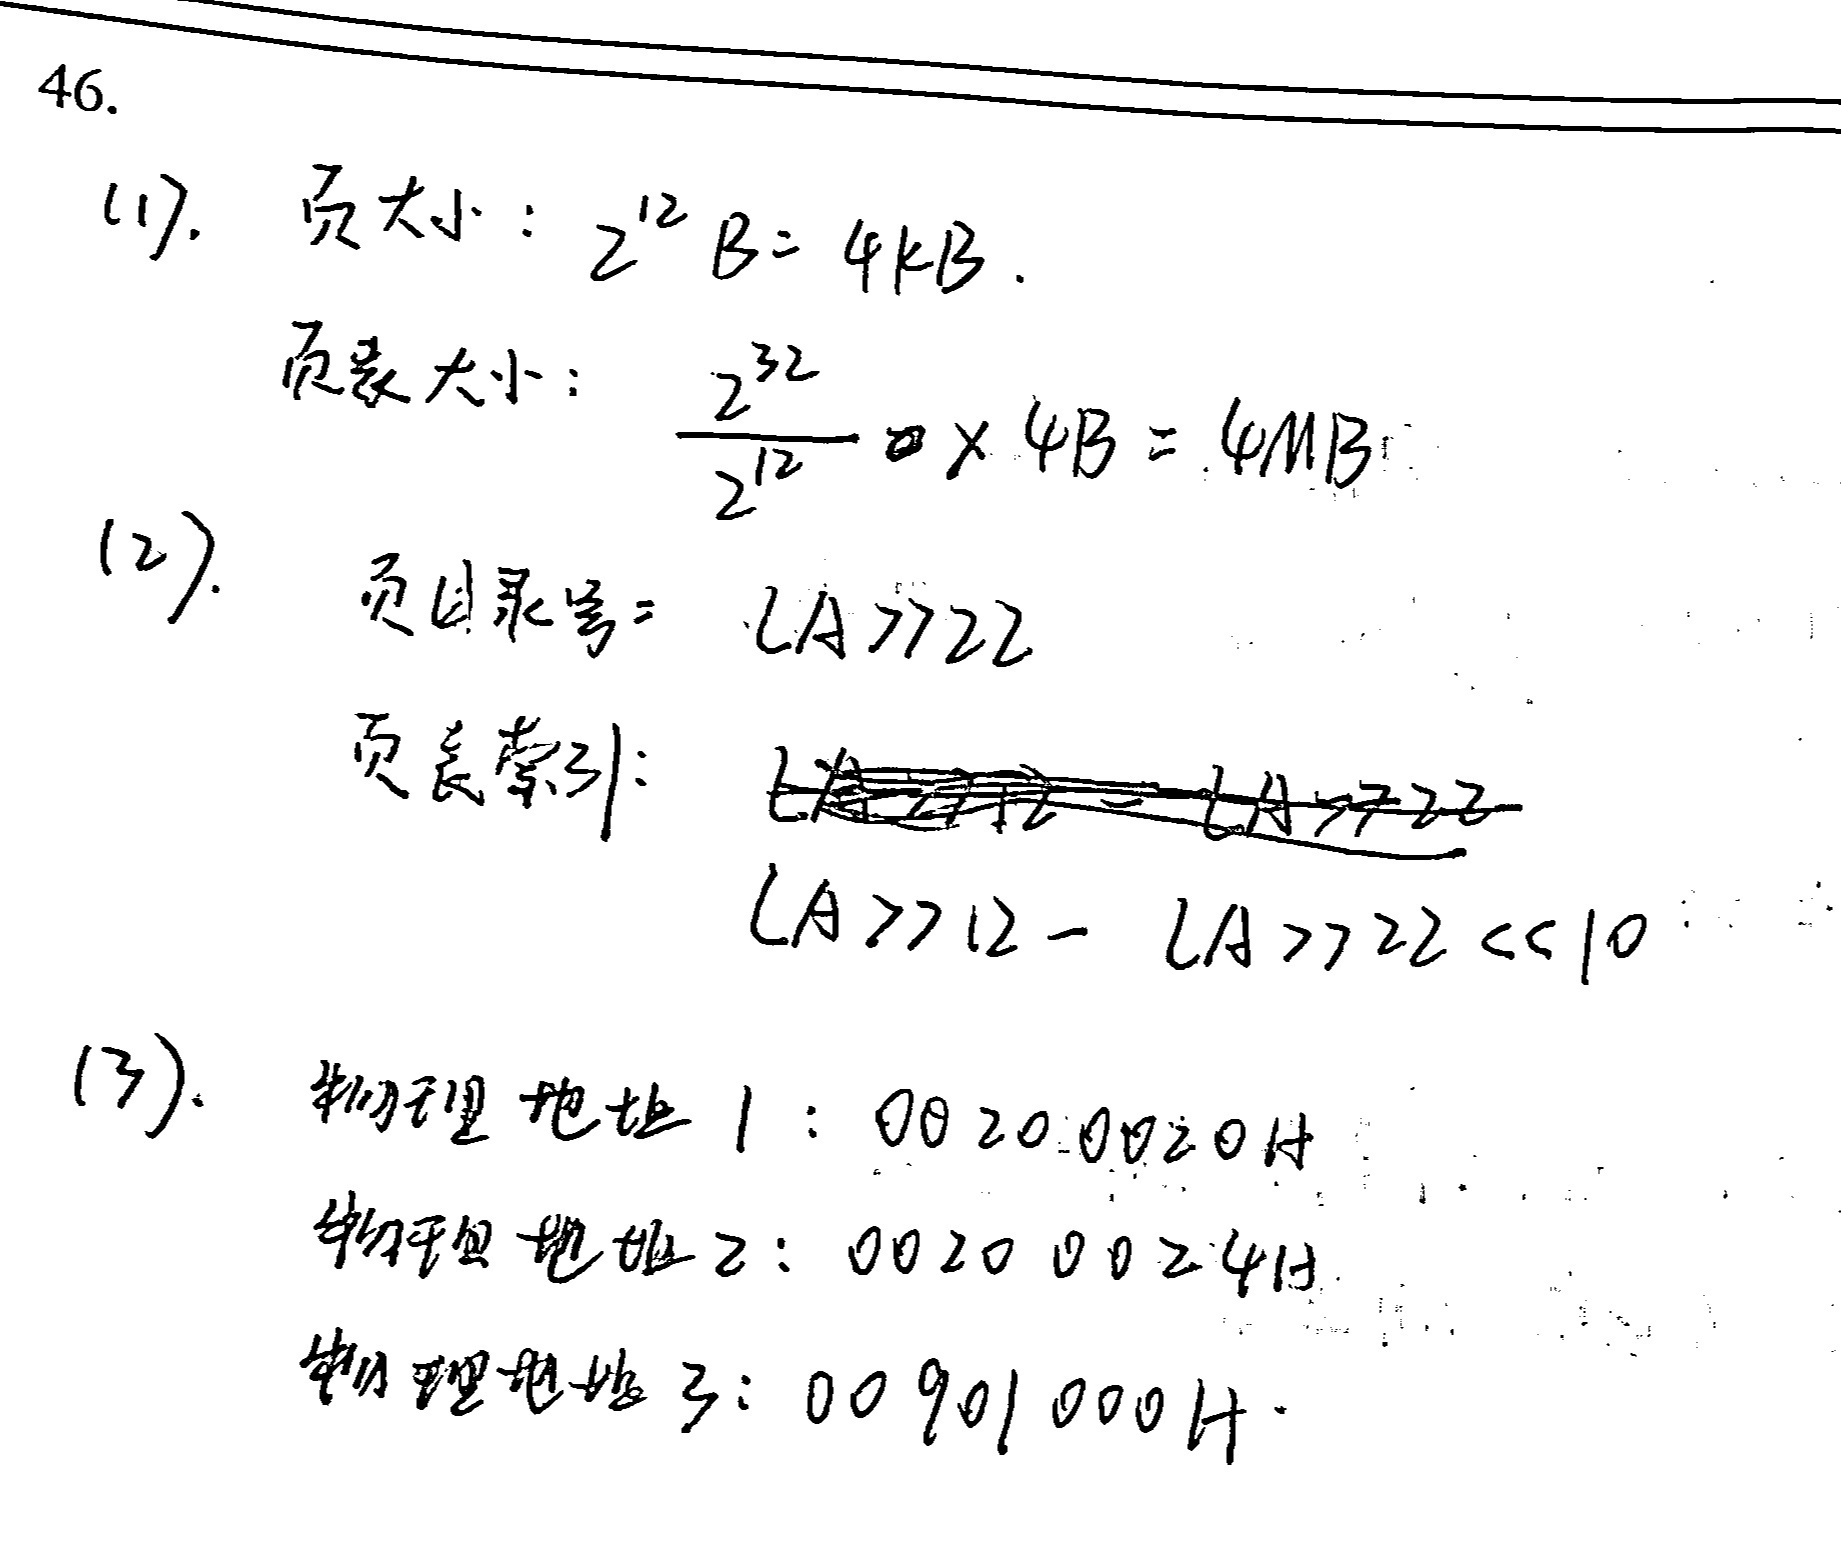 46.
(1). 页大小: 2^12 B = 4KB.
页表大小: 2^32 / 2^12 × 4B = 4MB
(2). 页目录号= LA>>22
页表索引:
LA>>12 - LA>>22<<10
(3). 物理地址1: 00200020H
物理地址2: 00200024H
物理地址3: 00901000H.